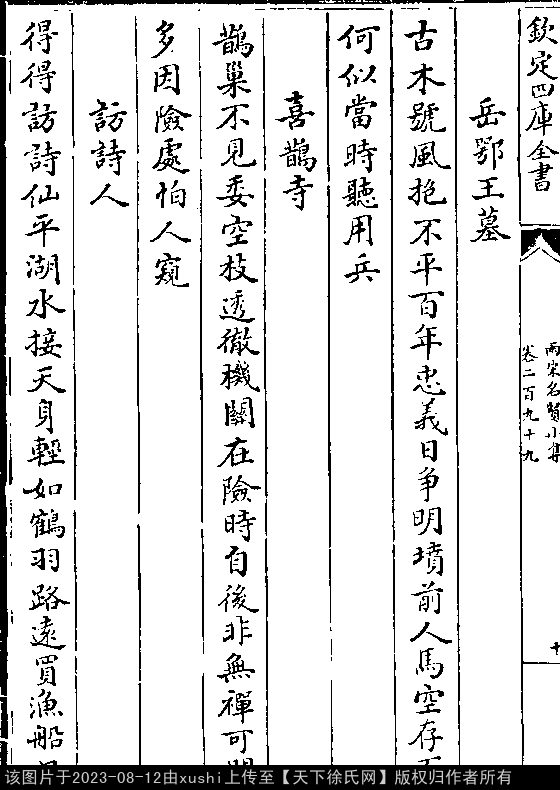 欽定四庫全書
兩宋名賢小集
卷二百九十九
十
岳鄂王墓
古木號風抱不平百年忠義日争明墳前人馬空存
何似當時聽用兵
喜鵲寺
鵲巢不見委空枝透徹機關在險時自後非無禪可
多因險處怕人窺
訪詩人
得得訪詩仙平湖水接天身輕如鶴羽路遠買漁船
该图片于2023-08-12由xushi上传至【天下徐氏网】版权归作者所有